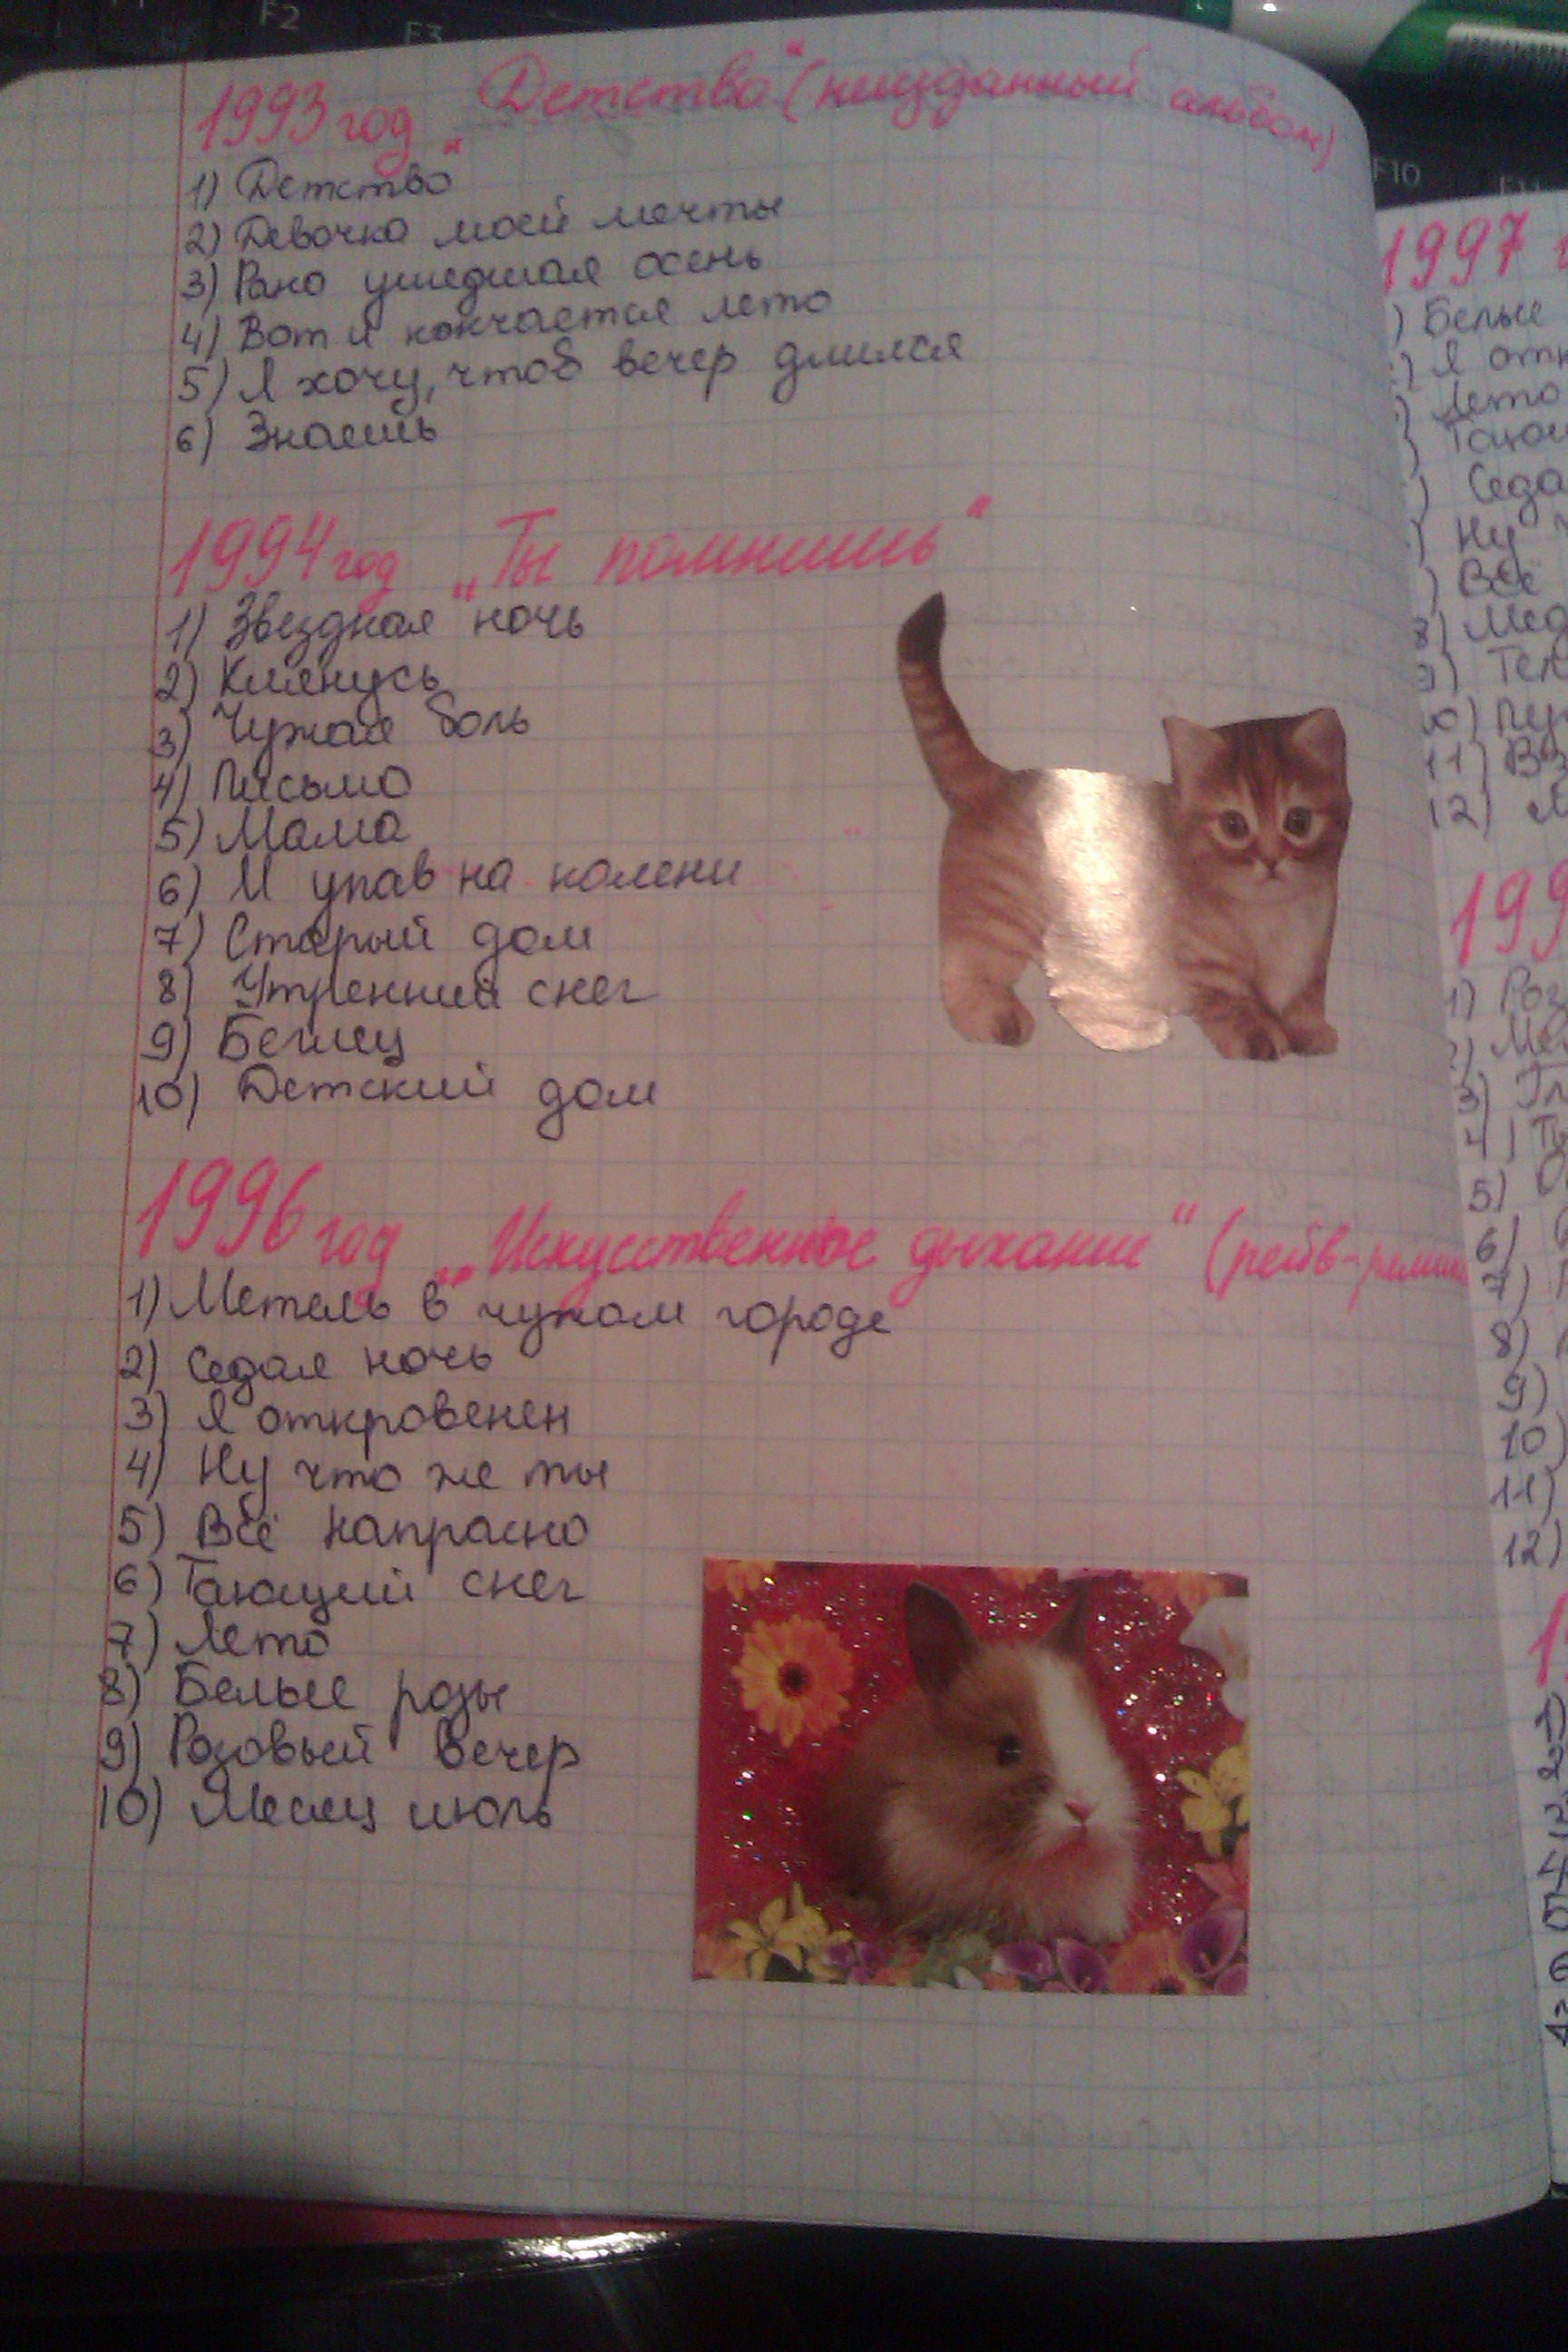 F2
F3
1993 год „Детство“ (неизданный альбом)
1) Детство
2) Девочка моей мечты
3) Рано ушедшая осень
4) Вот и кончается лето
5) Я хочу, чтоб вечер длился
6) Знаешь
1994 год „Ты помнишь“
1) Звездная ночь
2) Клянусь
3) Чужая боль
4) Письмо
5) Мама
6) И упав на колени
7) Старый дом
8) Утренний снег
9) Беглец
10) Детский дом
1996 год „Искусственное дыхание“ (рейв-ремикс
1) Метель в чужом городе
2) Седая ночь
3) Я откровенен
4) Ну что же ты
5) Всё напрасно
6) Тающий снег
7) Лето
8) Белые розы
9) Розовый вечер
10) Месяц июль
F10
1997
) Белые
) Я отк
) Лето
) Седа
) Ну
) Всё
8) Мед
9) Тел
11) Вз
12)
199
1) Роз
3) Гл
4)
5)
6)
7)
8)
9)
10)
11)
12)